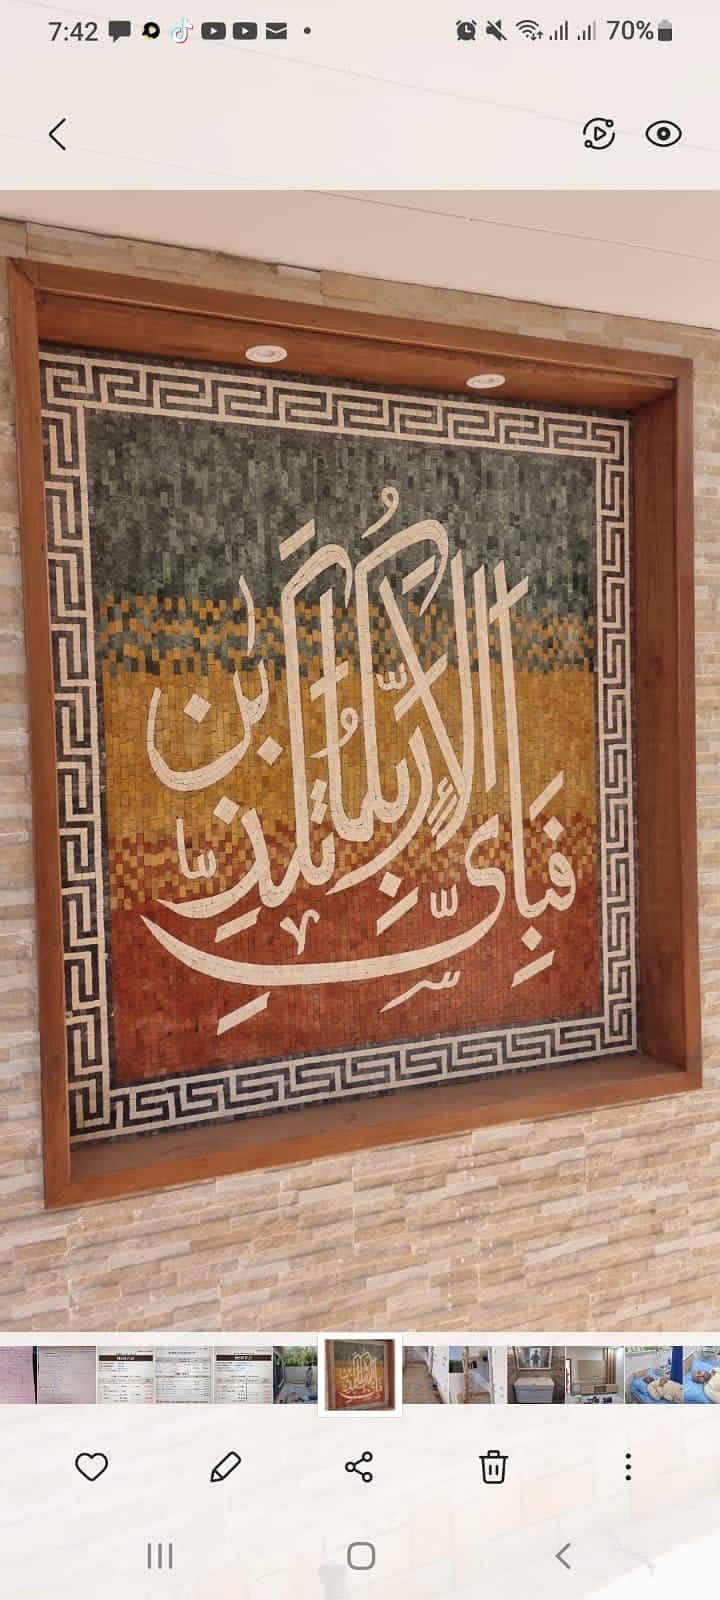 7:42
70%
فَبِأَيِّ آلَاءِ رَبِّكُمَا تُكَذِّبَانِ